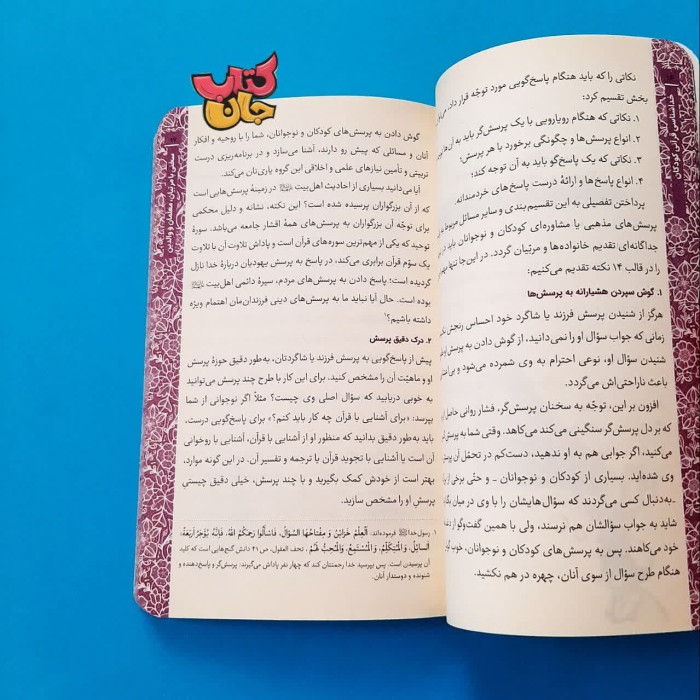 خداشناسی قرآنی کودکان
نکاتی را که باید هنگام پاسخ‌گویی مورد توجّه قرار داد، می‌
بخش تقسیم کرد:
۱. نکاتی که هنگام رویارویی با یک پرسش‌گر باید به آن‌ها
۲. انواع پرسش‌ها و چگونگی برخورد با هر پرسش؛
۳. نکاتی که یک پاسخ‌گو باید به آن توجه کند؛
۴. انواع پاسخ‌ها و ارائهٔ درست پاسخ‌های خردمندانه.
پرداختن تفصیلی به این تقسیم‌بندی و سایر مسائل مربوط به
پرسش‌های مذهبی یا مشاوره‌ای کودکان و نوجوانان باید در
جداگانه‌ای تقدیم خانواده‌ها و مربّیان گردد. در این‌جا تنها
را در قالب ۱۴ نکته تقدیم می‌کنیم:
۱. گوش سپردن هشیارانه به پرسش‌ها
هرگز از شنیدن پرسش فرزند یا شاگرد خود احساس رنجش
زمانی که جواب سؤال او را نمی‌دانید، از گوش دادن به پرسش او
شنیدن سؤال او، نوعی احترام به وی شمرده می‌شود و بی‌
باعث ناراحتی‌اش می‌گردد.
افزون بر این، توجّه به سخنان پرسش‌گر، فشار روانی حاصل از
که بر دل پرسش‌گر سنگینی می‌کند می‌کاهد. وقتی شما به پرسش
می‌کنید، اگر جوابی هم به او ندهید، دست‌کم در تحمّل آن
وی شده‌اید. بسیاری از کودکان و نوجوانان ـ و حتّی برخی از
ـ به‌دنبال کسی می‌گردند که سؤال‌هایشان را با وی در میان
شاید به جواب سؤالشان هم نرسند، ولی با همین گفت‌وگو از
خود می‌کاهند. پس به پرسش‌های کودکان و نوجوانان، خوب
هنگام طرح سؤال از سوی آنان، چهره در هم نکشید.
کتاب
جان
سخنی با مربّیان، معلمان و والدین
گوش دادن به پرسش‌های کودکان و نوجوانان، شما را با روحیه و افکار
آنان و مسائلی که پیش رو دارند، آشنا می‌سازد و در برنامه‌ریزی درست
تربیتی و تأمین نیازهای علمی و اخلاقی این گروه یاری‌تان می‌کند.
آیا می‌دانید بسیاری از احادیث اهل‌بیت در زمینهٔ پرسش‌هایی است
که از آن بزرگواران پرسیده شده است؟ این نکته، نشانه و دلیل محکمی
برای توجّه آن بزرگواران به پرسش‌های همهٔ اقشار جامعه می‌باشد. سورهٔ
توحید که یکی از مهم‌ترین سوره‌های قرآن است و پاداش تلاوت آن با تلاوت
یک سوّم قرآن برابری می‌کند، در پاسخ به پرسش یهودیان دربارهٔ خدا نازل
گردیده است؛ پاسخ دادن به پرسش‌های مردم، سیرهٔ دائمی اهل‌بیت
بوده است. حال آیا نباید ما به پرسش‌های دینی فرزندان‌مان اهتمام ویژه
داشته باشیم؟۱
۲. درک دقیق پرسش
پیش از پاسخ‌گویی به پرسش فرزند یا شاگردتان، به‌طور دقیق حوزهٔ پرسش
او و ماهیّت آن را مشخص کنید. برای این کار با طرح چند پرسش می‌توانید
به خوبی دریابید که سؤال اصلی وی چیست؟ مثلاً اگر نوجوانی از شما
بپرسد: «برای آشنایی با قرآن چه کار باید کنم؟» برای پاسخ‌گویی درست،
باید به‌طور دقیق بدانید که منظور او از آشنایی با قرآن، آشنایی با روخوانی
آن است یا آشنایی با تجوید قرآن یا ترجمه و تفسیر آن. در این گونه موارد،
بهتر است از خودش کمک بگیرید و با چند پرسش، خیلی دقیق چیستیِ
پرسش او را مشخص سازید.
۱. رسول خدا فرموده‌اند: اَلْعِلْمُ خَزائِنُ وَ مِفْتاحُهَا السُّؤالُ، فَاسْأَلُوا رَحِمَكُمُ اللهُ، فَإِنَّهُ يُؤْجَرُ أَرْبَعَةٌ:
السّائِلُ، وَ الْمُتَكَلِّمُ، وَ الْمُسْتَمِعُ، وَ الْمُحِبُّ لَهُمْ. تحف العقول، ص ۴۱ دانش گنج‌هایی است که کلید
آن پرسیدن است. پس بپرسید خدا رحمتتان کند که چهار نفر پاداش می‌گیرند: پرسش‌گر و پاسخ‌دهنده و
شنونده و دوستدار آنان.